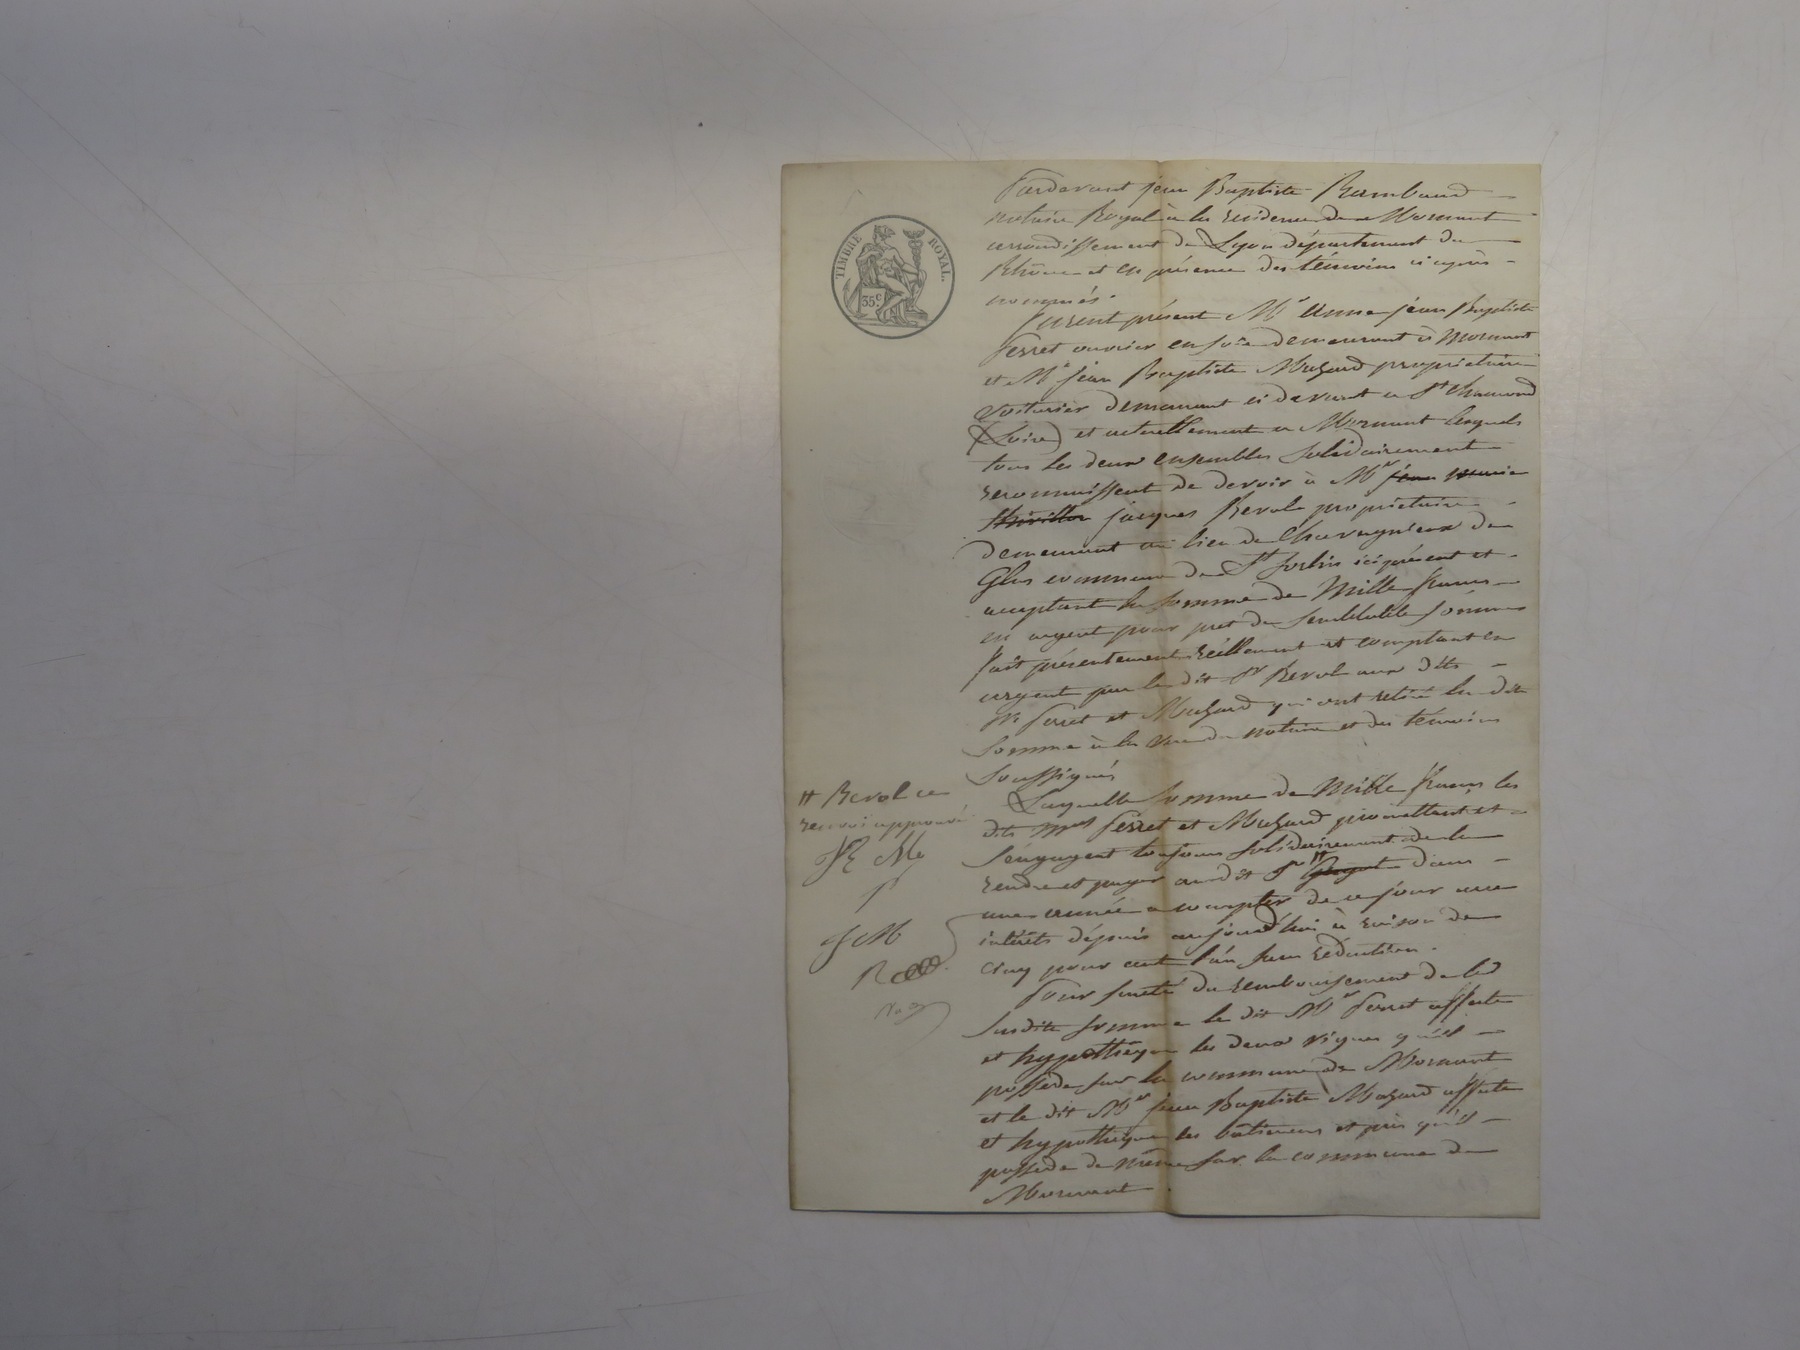 TIMBRE ROYAL.
35c.
Pardevant jean Baptiste Rambaud
notaire Royal à la residence de Mornant
arrondissement de Lyon département du
Rhône et en présence des témoins ci après
nommés.
furent présent Mr Anne jean Baptiste
ferret ouvrier en soie demeurant à Mornant
et Mr jean Baptiste Mazard propriétaire
Voiturier demeurant ci devant a St Chamond
(Loire) et actuellement a Mornant lesquels
tous les deux ensembles solidairement
reconnaissent de devoir à Mr
jacques Revol propriétaire
demeurant au lieu de Chavagnieux de
Glas commune de St Sorlin ici présent et
acceptant la somme de Mille francs
en argent pour pret de semblable somme
fait présentement réellement et comptant en
argent par le dit Sr Revol aux dits
Mr ferret et Mazard qui ont retiré la dite
Somme à la vue du notaire et des témoins
Soussignés
Laquelle somme de Mille francs les
dits Mrs ferret et Mazard promettent et
s'engagent toujours solidairement de la
rendre et payer au dit Sr # dans
une année a compter de ce jour avec
intérêts dépuis aujourd'hui à raison de
cinq pour cent l'an sans réduction.
Pour sureté du remboursement de la
susdite somme le dit Mr ferret affecte
et hypothèque les deux vignes qu'il
possede sur la commune de Mornant
et le dit Mr jean Baptiste Mazard affecte
et hypothèque les batimens et prés qu'il
possede de même sur la commune de
Mornant.
# Revol ce
renvoi approuvé